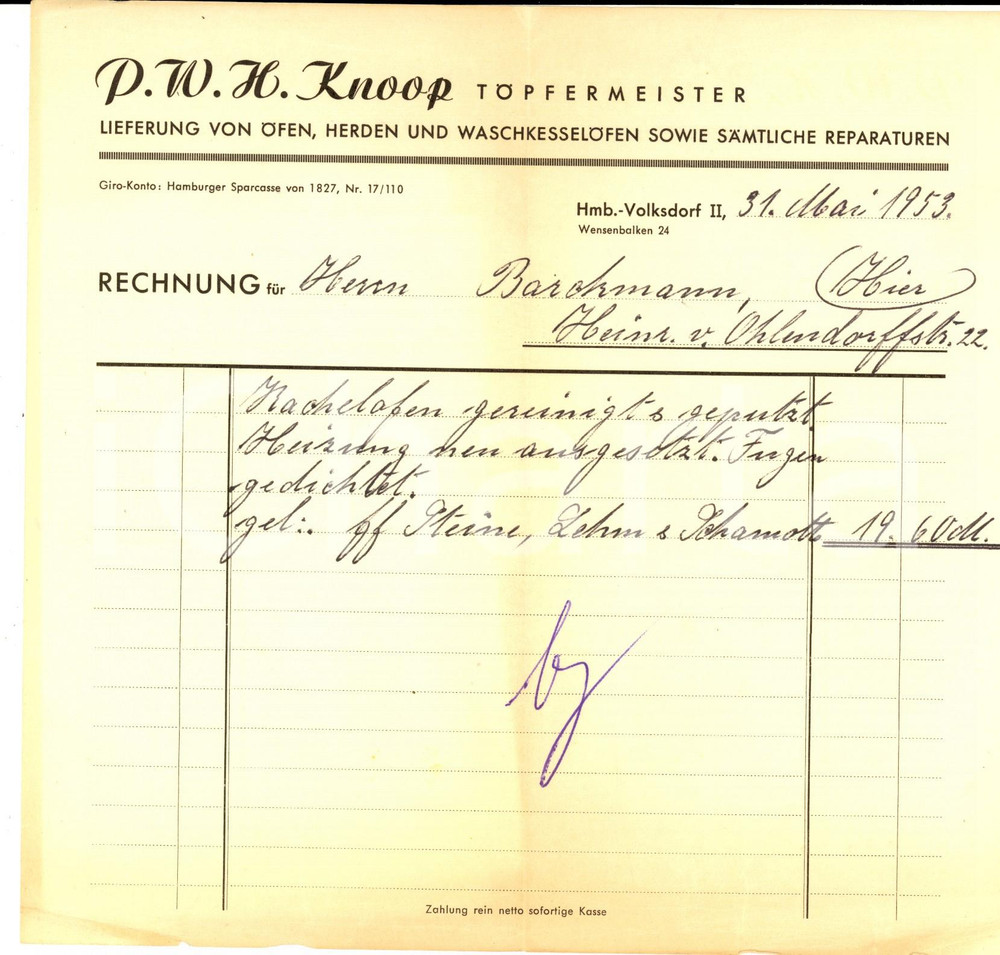 P.W.H. Knoop TÖPFERMEISTER
LIEFERUNG VON ÖFEN, HERDEN UND WASCHKESSELÖFEN SOWIE SÄMTLICHE REPARATUREN
Giro-Konto: Hamburger Sparcasse von 1827, Nr. 17/110
Hmb.-Volksdorf II, 31. Mai 1953.
Wensenbalken 24
RECHNUNG für Herrn Barckmann, (Hier)
Heinr. v. Ohlendorffstr. 22.
Kachelofen gereinigt & geputzt
Heizung neu ausgesetzt. Fugen
gedichtet.
gel:. ff Steine, Lehm & Schamott 19.60 M.
Zahlung rein netto sofortige Kasse